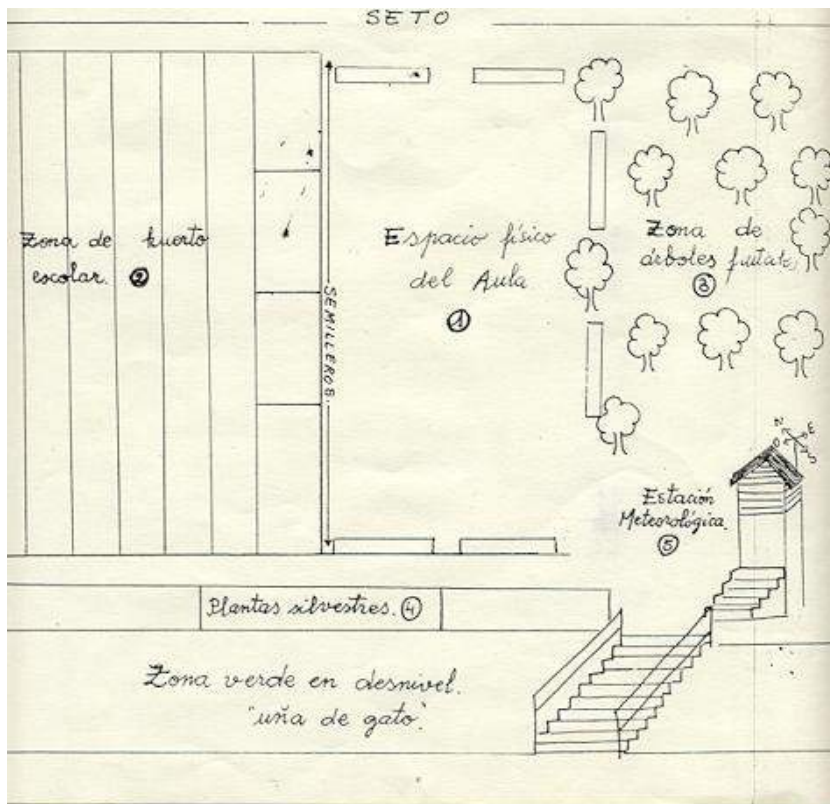 SETO
Zona de huerto
escolar. 2
SEMILLEROS.
Espacio físico
del Aula
1
Zona de
árboles frutales
3
N E
O S
Estación
Meteorológica.
5
Plantas silvestres. 4
Zona verde en desnivel.
"uña de gato".